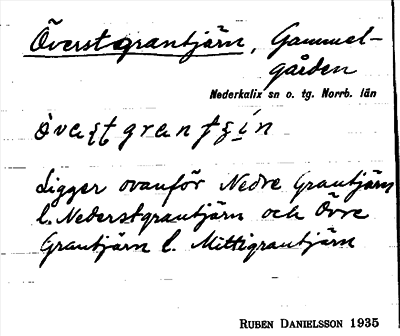 Överstgrantjärn, Gammel-
gården
Nederkalix sn o. tg. Norrb. län
Ligger ovanför Nedre Grantjärn
l. Nederstgrantjärn och Övre
Grantjärn l. Mittigrantjärn
RUBEN DANIELSSON 1935